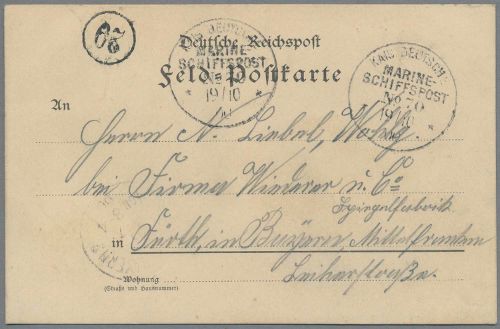 29
Deutsche Reichspost
Feld-Postkarte
KAIS. DEUTSCHE
MARINE-
SCHIFFSPOST
No
19/10
KAIS. DEUTSCHE
MARINE-
SCHIFFSPOST
No 20
19/10
An
Herrn N. Liebel,
bei Firma Wiederer u. Co
Spiegelfabrik
in Fürth, in Bayern Mittelfranken
Wohnung
(Straße und Hausnummer)